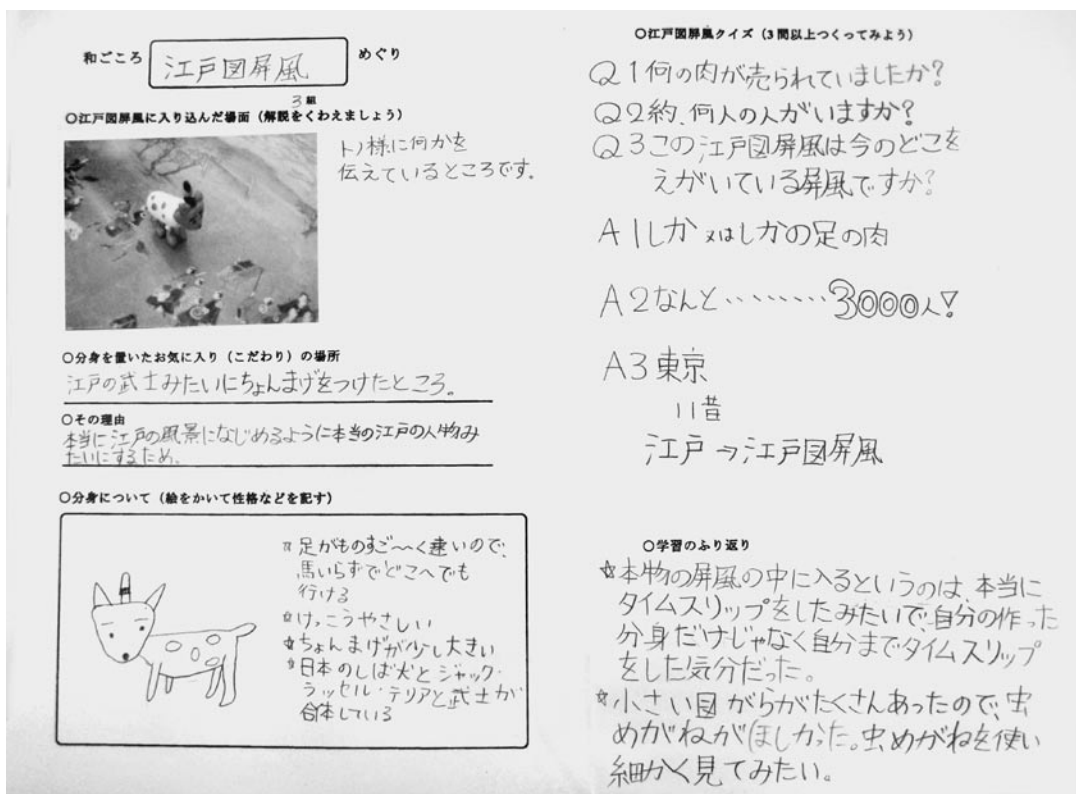 和ごころ 江戸図屏風 めぐり
3組
○江戸図屏風に入り込んだ場面（解説をくわえましょう）
トノ様に何かを
伝えているところです。
○分身を置いたお気に入り（こだわり）の場所
江戸の武士みたいにちょんまげをつけたところ。
○その理由
本当に江戸の風景になじめるように本当の江戸の人物み
たいにするため、
○分身について（絵をかいて性格などを記す）
☆足がものすご〜く速いので、
馬いらずでどこへでも
行ける
☆けっこうやさしい
☆ちょんまげが少し大きい
☆日本のしば犬とジャック・
ラッセル・テリアと武士が
合体している
○江戸図屏風クイズ（3問以上つくってみよう）
Q1何の肉が売られていましたか?
Q2約、何人の人がいますか?
Q3この江戸図屏風は今のどこを
えがいている屏風ですか?
A1しか又はしかの足の肉
A2なんと‥‥‥‥3000人!
A3東京
||昔
江戸⇒江戸図屏風
○学習のふり返り
☆本物の屏風の中に入るというのは、本当に
タイムスリップをしたみたいで、自分の作った
分身だけじゃなく自分までタイムスリップ
をした気分だった。
☆小さい図がらがたくさんあったので、虫
めがねがほしかった。虫めがねを使い
細かく見てみたい。